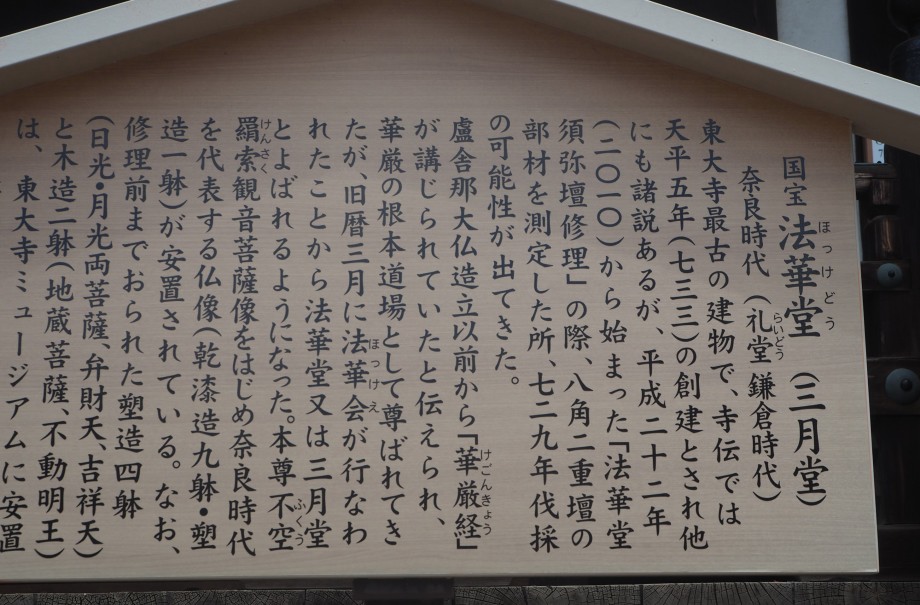 国宝 法華堂（三月堂）
奈良時代（礼堂 鎌倉時代）
東大寺最古の建物で、寺伝では
天平五年（七三三）の創建とされ他
にも諸説あるが、平成二十二年
（二〇一〇）から始まった「法華堂
須弥壇修理」の際、八角二重壇の
部材を測定した所、七二九年伐採
の可能性が出てきた。
盧舎那大仏造立以前から「華厳経」
が講じられていたと伝えられ、
華厳の根本道場として尊ばれてき
たが、旧暦三月に法華会が行なわ
れたことから法華堂又は三月堂
とよばれるようになった。本尊不空
羂索観音菩薩像をはじめ奈良時代
を代表する仏像（乾漆造九躰・塑
造一躰）が安置されている。なお、
修理前までおられた塑造四躰
（日光・月光両菩薩、弁財天、吉祥天）
と木造二躰（地蔵菩薩、不動明王）
は、東大寺ミュージアムに安置